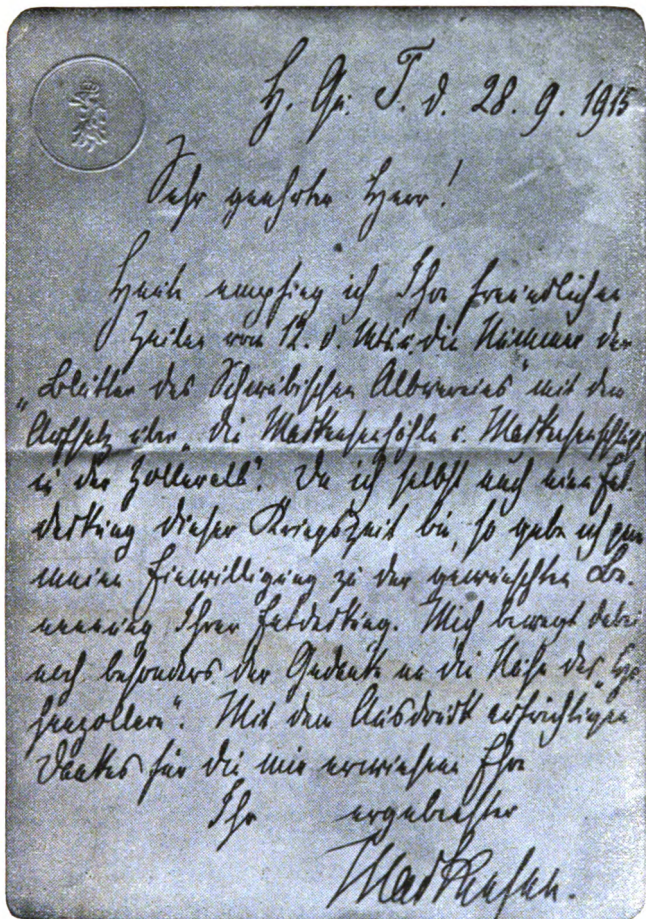 H. Qu. T. d. 28. 9. 1915
Sehr geehrter Herr!
Heute empfing ich Ihre freundlichen
Zeilen vom 12. d. Mts. u. die Nummer der
„Blätter des Schwäbischen Albvereins" mit dem
Aufsatz über „die Mackensenhöhle u. Mackensenschlucht
in der Zolleralb". Da ich selbst auch eine Ent-
deckung dieser Kriegszeit bin, so gebe ich gern
meine Einwilligung zu der gewünschten Be-
nennung Ihrer Entdeckung. Mich bewegt dabei
noch besonders der Gedanke an die Nähe des „Ho-
henzollern". Mit dem Ausdruck aufrichtigen
Dankes für die mir erwiesene Ehre
Ihr ergebenster
Mackensen.